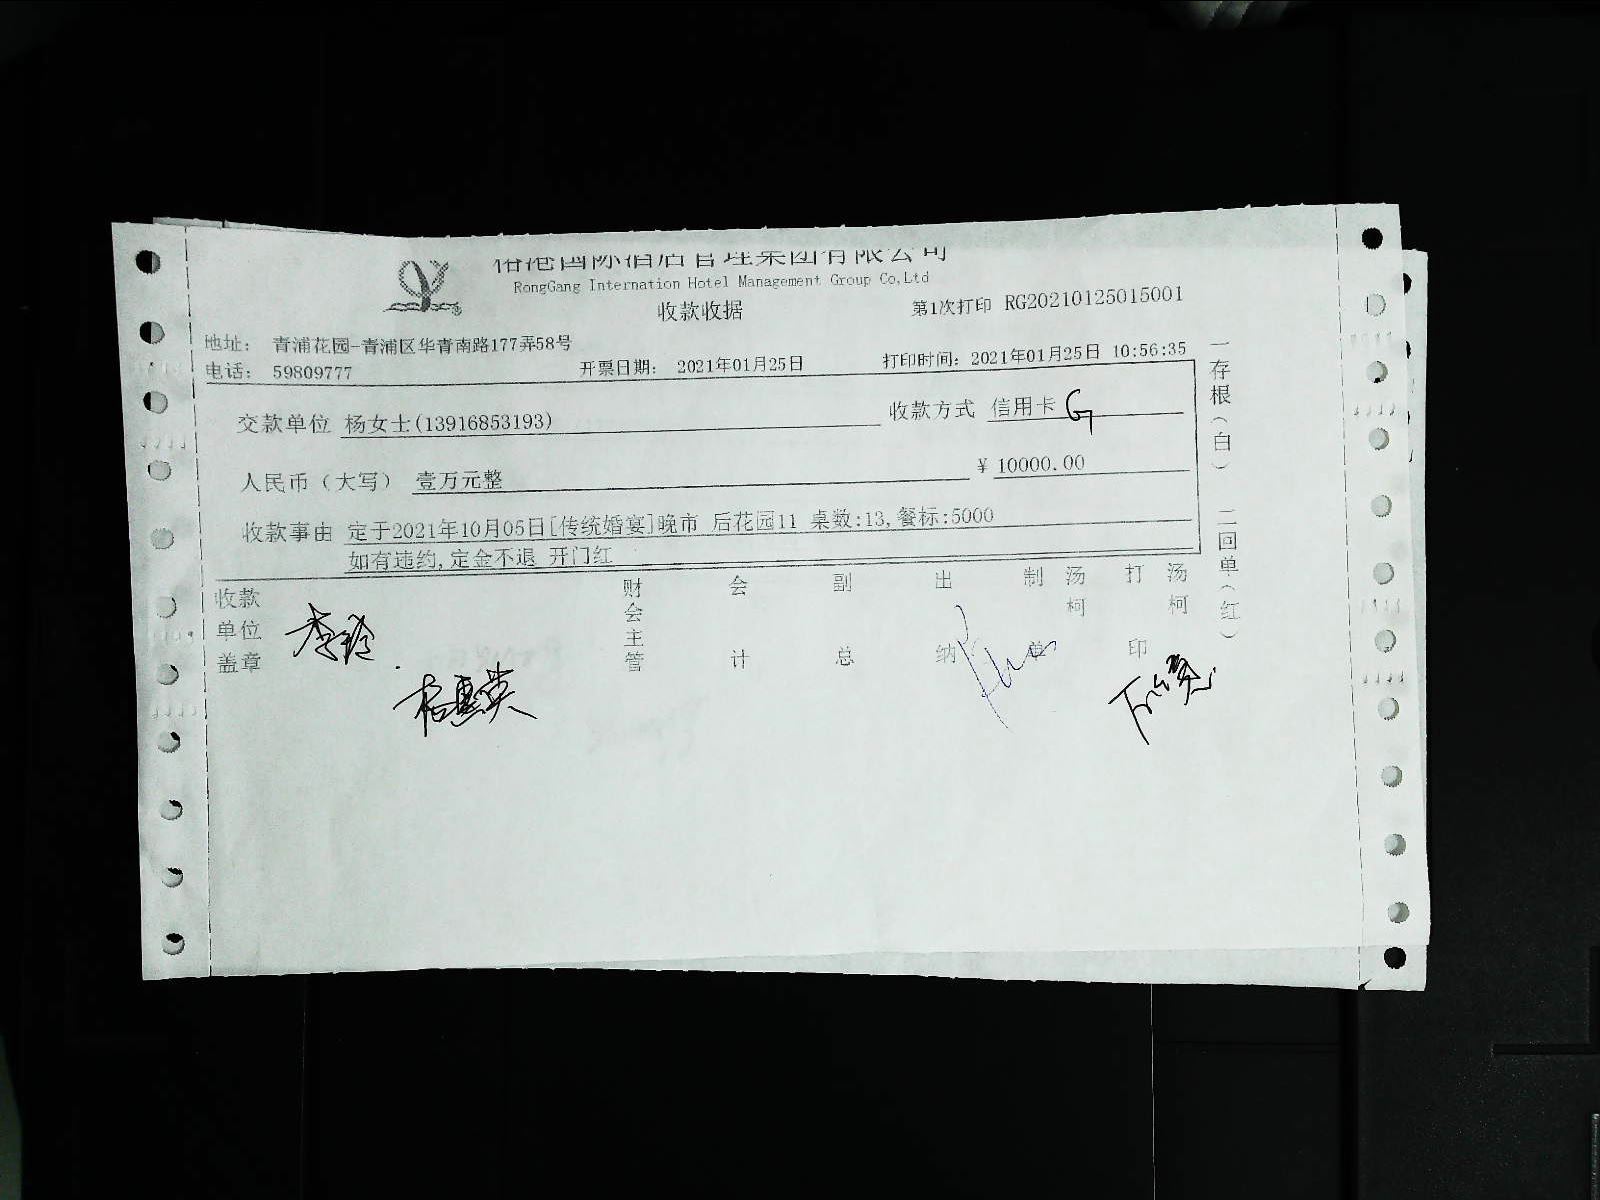 榕港国际酒店管理集团有限公司
RongGang Internation Hotel Management Group Co,Ltd
收款收据
第1次打印 RG20210125015001
地址： 青浦花园-青浦区华青南路177弄58号
电话： 59809777 开票日期： 2021年01月25日 打印时间：2021年01月25日 10:56:35
交款单位 杨女士(13916853193) 收款方式 信用卡 G
人民币（大写） 壹万元整 ¥ 10000.00
收款事由 定于2021年10月05日[传统婚宴]晚市 后花园11 桌数:13,餐标:5000
如有违约,定金不退 开门红
收款单位盖章 财会主管 会计 副总 出纳 制单 汤柯 打印 汤柯
一存根（白） 二回单（红）